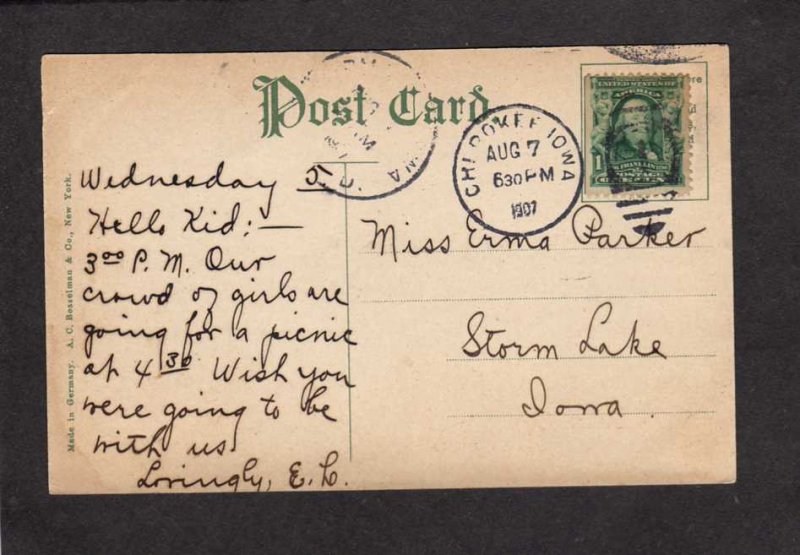 Post Card
CHEROKEE IOWA
AUG 7
630 PM
1907
UNITED STATES OF
AMERICA
1
POSTAGE
Wednesday
Hello Kid:—
3 00 P. M. Our
crowd of girls are
going for a picnic
at 4 30 Wish you
were going to be
with us
Lovingly, E. L.
Miss Erma Parker
Storm Lake
Iowa.
Made in Germany. A. C. Bosselman & Co., New York.